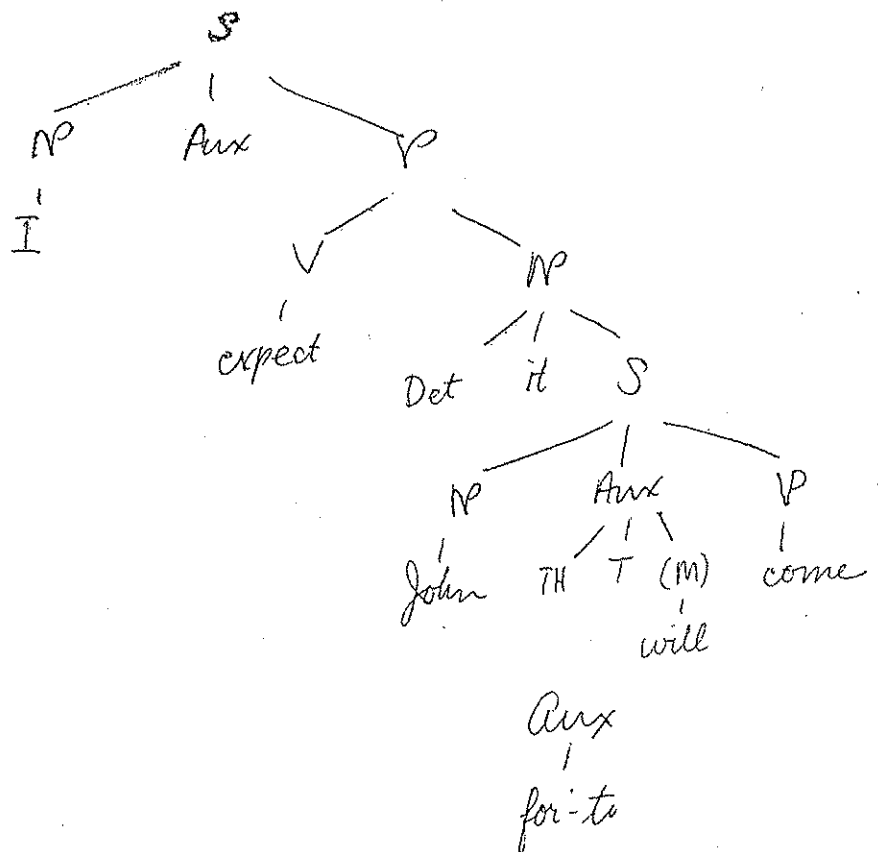 S
NP Aux VP
I
V NP
expect
Det it S
NP Aux VP
John TH T (M) come
will
Aux
for-to